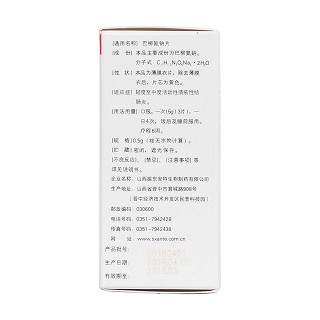 [通用名称] 巴柳氮钠片
[成 份] 本品主要成份为巴柳氮钠。
分子式 C₁₇H₁₃N₃O₆Na₂·2H₂O
[性 状] 本品为薄膜衣片，除去薄膜
衣后，片芯为黄色。
[适应症] 轻度至中度活动性溃疡性结
肠炎。
[用法用量] 口服。一次1.5g(3片)，一
日4次，饭后及睡前服用。
疗程8周。
[规 格] 0.5g(按无水物计算)。
[贮 藏] 密闭，遮光保存。
[不良反应]、[禁忌]、[注意事项] 等
详见说明书。
企业名称: 山西振东安特生物制药有限公司
生产地址: 山西省晋中市
(晋中经济技术开发区
邮政编码: 030600
电话号码: 0351-7942428
传真号码: 0351-7942438
网 址: www.sxante.com.cn
产品批号:
生产日期:
有效期至: